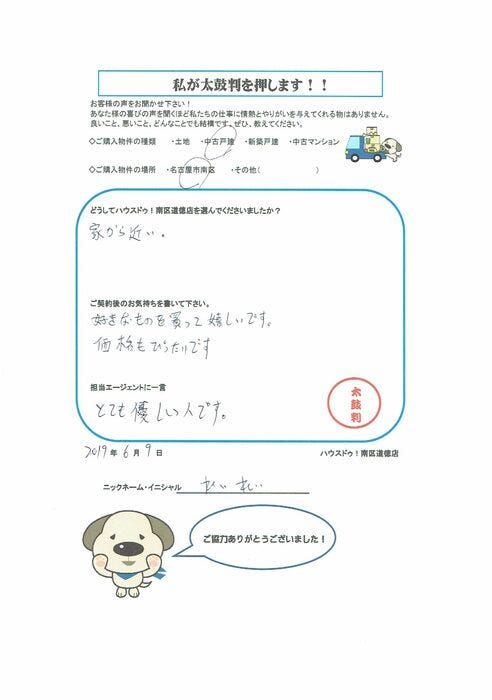 私が太鼓判を押します！！
お客様の声をお聞かせ下さい！
あなた様の喜びの声を聞くほど私たちの仕事に情熱とやりがいを与えてくれる物はありません。
良いこと、悪いこと、どんなことでも結構です。ぜひ、教えてください。
◇ご購入物件の種類 ・土地 ・中古戸建 ・新築戸建 ・中古マンション
◇ご購入物件の場所 ・名古屋市南区 ・その他( )
どうしてハウスドゥ！南区道徳店を選んでくださいましたか？
家から近い。
ご契約後のお気持ちを書いて下さい。
好きなものを買って嬉しいです。
価格もぴったりです
担当エージェントに一言
とても優しい人です。
太鼓判
2019年 6月 9日
ハウスドゥ！南区道徳店
ニックネーム・イニシャル
ご協力ありがとうございました！